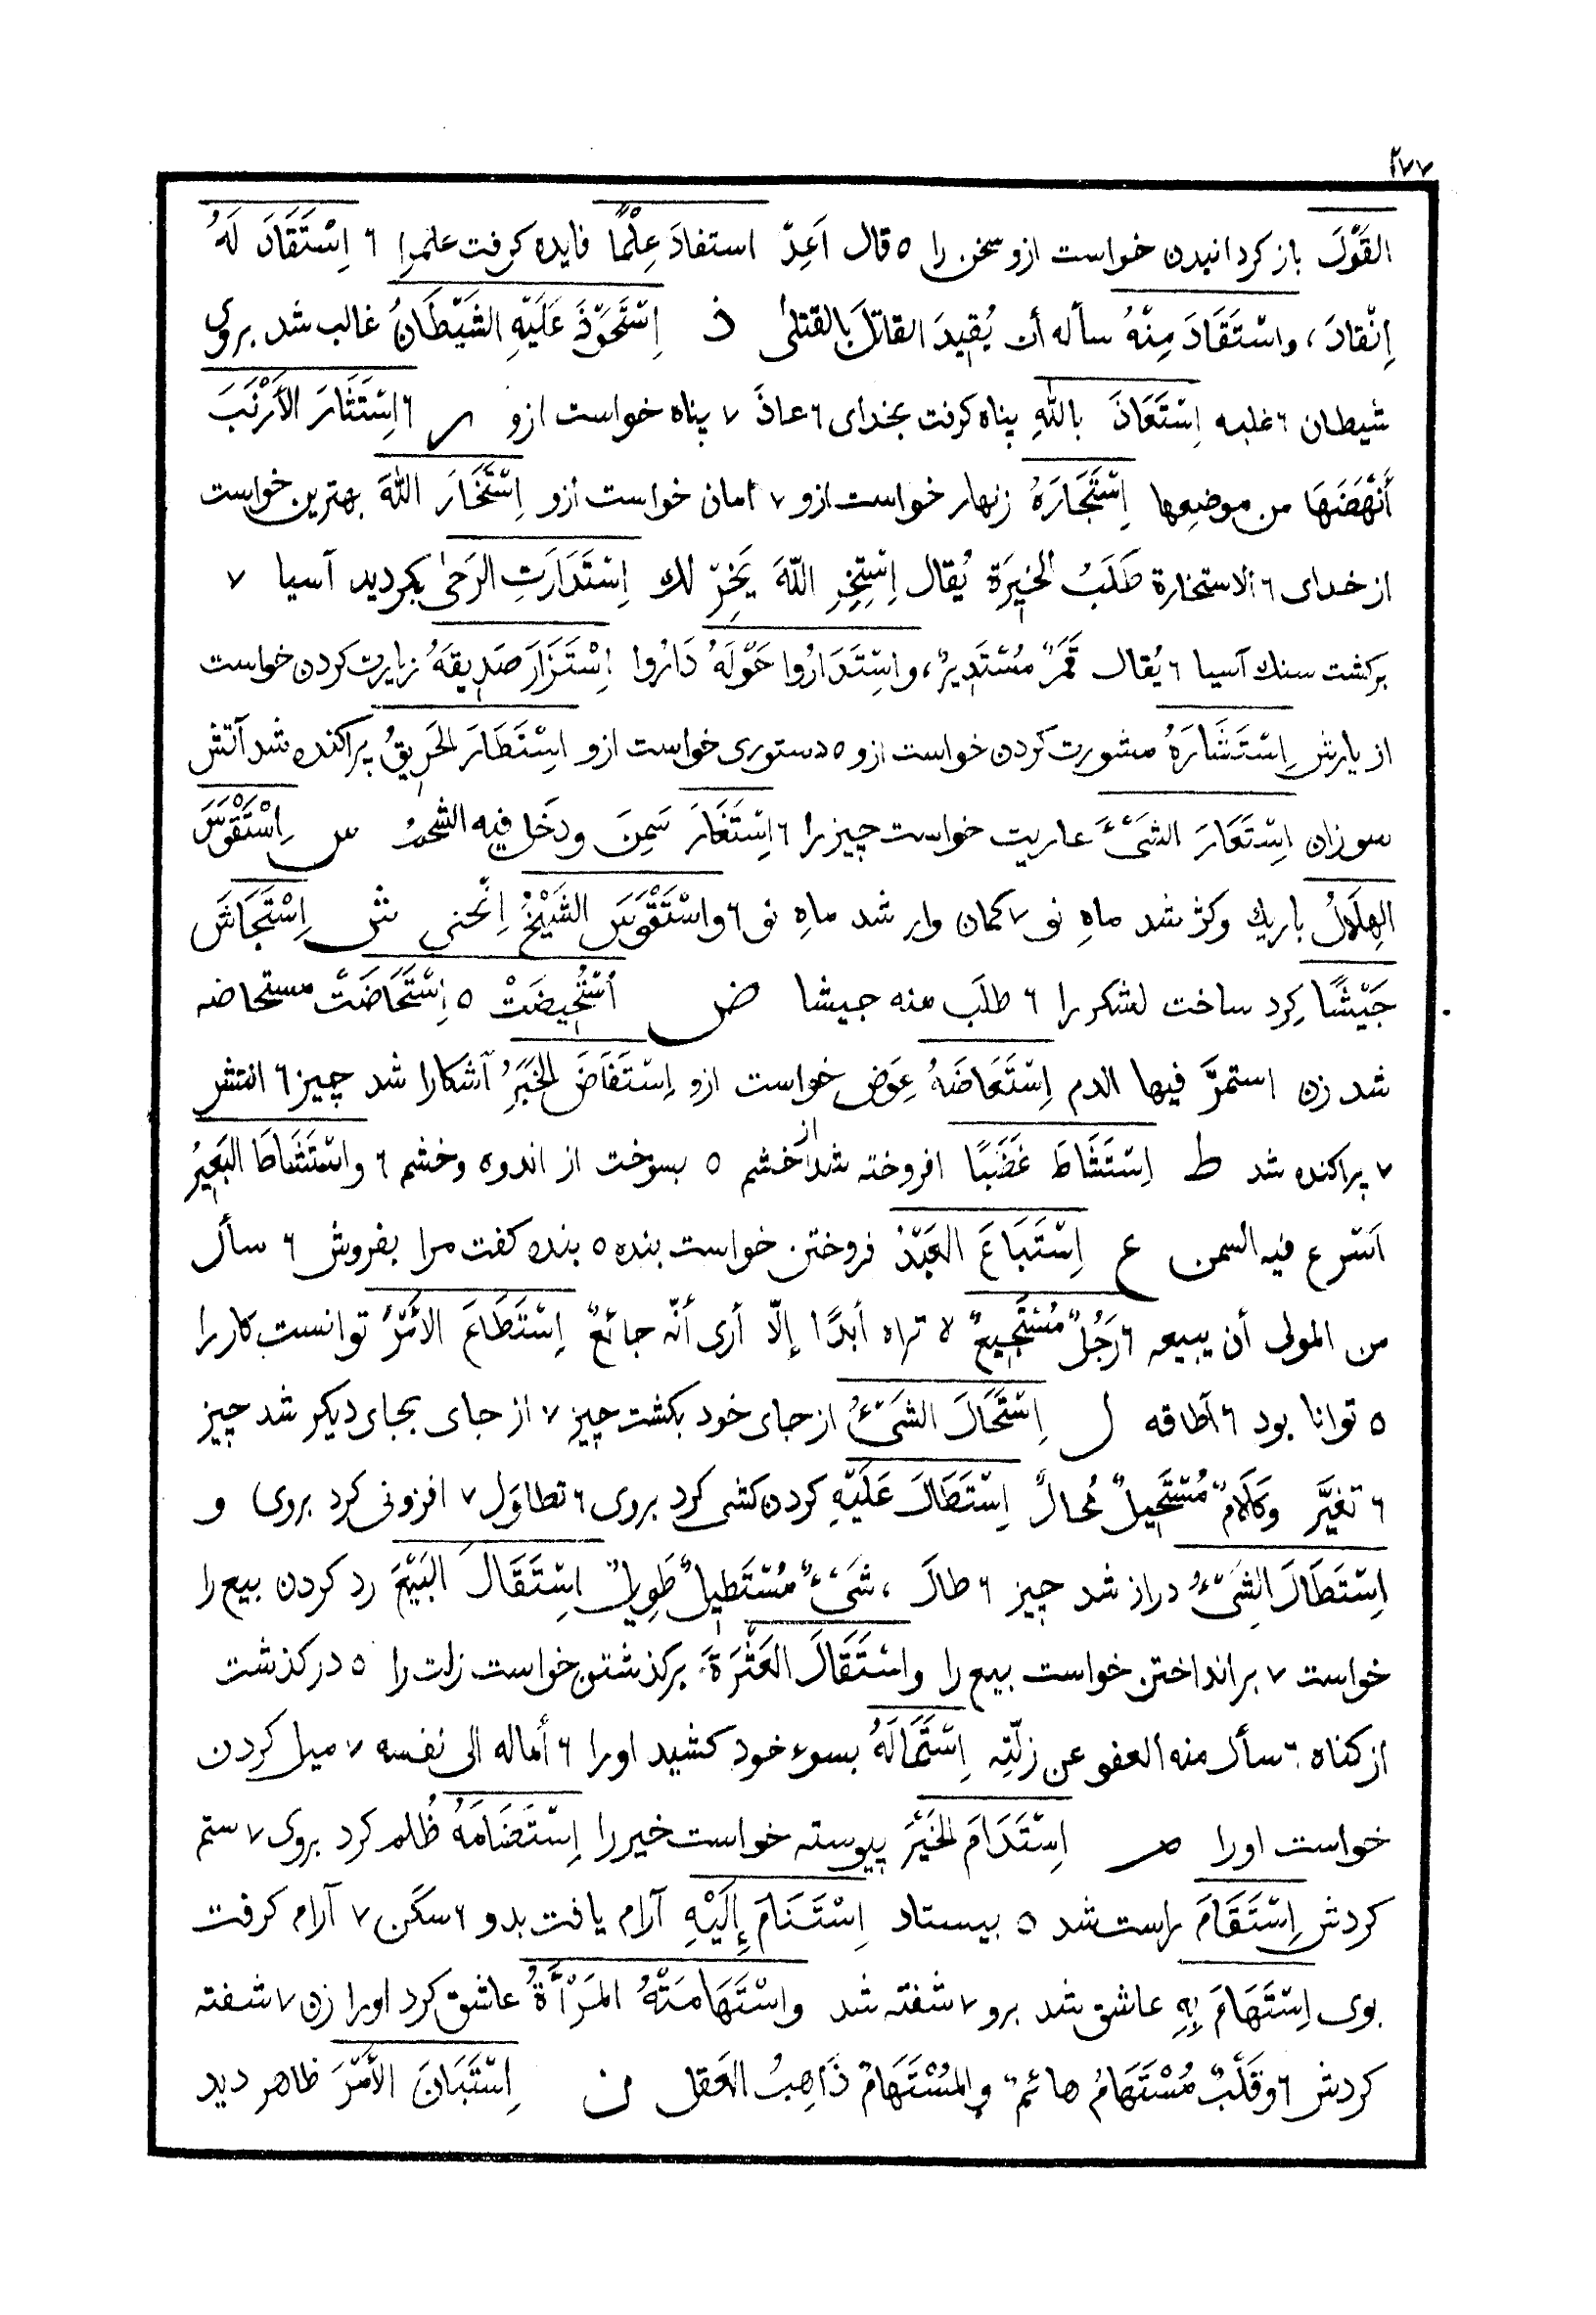 ٢٧٧
القَوْلَ باز كردانيدن خواست ازو سخن را ٥ قال اَعِدْ استفادَ عِلْمًا فايده كرفت علمرا ٦ اِسْتَقَادَ لَهُ
اِنْقادَ، واسْتَقَادَ مِنْهُ سأله أن يُقِيدَ القاتلَ بالقتلىٰ ذ اِسْتَحْوَذَ عَلَيْهِ الشَيْطَانُ غالب شد بروى
شيطان ٦ غلبه اِسْتَعَاذَ باللهِ پناه كرفت بخداى ٦ عاذَ ٧ پناه خواست ازو ر ٦ اِسْتَثَارَ الأَرْنَبَ
أَنْهَضَهَا من موضعها اِسْتَجَارَهُ زنهار خواست ازو ٧ امان خواست ازو اِسْتَخَارَ اللهَ بهترين خواست
از خداى ٦ الاستخارة طَلَبُ الخِيَرَة يُقال اِسْتَخِرِ اللهَ يَخِرْ لك اِسْتَدَارَتِ الرَحىٰ بكرديد آسيا ٧
بركشت سنك آسيا ٦ يُقال قَمَرٌ مُسْتَدِيرٌ، واسْتَدَارُوا حَوْلَهُ دَارُوا اِسْتَزَارَ صَدِيقَهُ زيارت كردن خواست
از يارش اِسْتَشَارَهُ مشورت كردن خواست ازو ٥ دستورى خواست ازو اسْتَطَارَ الحَرِيقُ پراكنده شد آتش
سوزان اِسْتَعَارَ الشَىْءَ عاريت خواست چيز را ٦ اِسْتَغَارَ سَمِنَ ودَخَل فيه الشحمُ س اِسْتَقْوَسَ
الهِلَالُ باريك وكژ شد ماهِ نو ٧ كمان وار شد ماهِ نو ٦ واسْتَقْوَسَ الشَيْخُ اِنْحنى ش اِسْتَجَاشَ
جَيْشًا كِرد ساخت لشكر را ٦ طلَب منه جيشا ض اُسْتُحِيضَتْ ٥ اِسْتَحَاضَتْ مستحاضه
شد زن استمرَّ فيها الدم اِسْتَعَاضَهُ عِوَض خواست ازو اِسْتَفَاضَ الخَبَرُ آشكارا شد چيز ٦ انتشر
٧ پراكنده شد ط اِسْتَشَاطَ غَضَبًا افروخته شد از خشم ٥ بسوخت از اندوه وخشم ٦ واسْتَشَاطَ البَعِيرُ
اَسْرع فيه السمن ع اِسْتَبَاعَ العَبْدَ فروختن خواست بنده ٥ بنده كفت مرا بفروش ٦ سأل
من المولى أن يبيعه ٦ رَجُلٌ مُسْتَجِيعٌ لا تراه أبدًا إلّا أرى أنّه جائعٌ اِسْتَطَاعَ الأمْرَ توانست كار را
٥ توانا بود ٦ أطاقه ل اِسْتَحَالَ الشَىْءُ از جاى خود بكشت چيز ٧ از جاى بجاى ديكر شد چيز
٦ تغيَّر وَكَلَامٌ مُسْتَحِيلٌ مُحالٌ اِسْتَطَالَ عَلَيْهِ كردن كشى كرد بروى ٦ تطاوَل ٧ افزونى كرد بروى و
اِسْتَطَالَ الشَىْءُ دراز شد چيز ٦ طالَ، شَىْءٌ مُسْتَطِيلٌ طَوِيلٌ اِسْتَقَالَ البَيْعَ رد كردن بيع را
خواست ٧ برانداختن خواست بيع را واسْتَقَالَ العَثْرَةَ بركذشتن خواست زلت را ٥ دركذشت
از كناه ٦ سأل منه العفو عن زلّتِه اِسْتَمَالَهُ بسوء خود كشيد اورا ٦ أماله الى نفسه ٧ ميل كردن
خواست اورا م اِسْتَدَامَ الخَيْرَ پيوسته خواست خير را اِسْتَضَامَهُ ظُلم كرد بروى ٧ ستم
كردش اِسْتَقَامَ راست شد ٥ بيستاد اِسْتَنَامَ إِلَيْهِ آرام يافت بدو ٦ سكَن ٧ آرام كرفت
بوى اِسْتَهَامَ بِهِ عاشق شد برو ٧ شفته شد واسْتَهَامَتْهُ المَرْأَةُ عاشق كرد اورا زن ٧ شفته
كردش ٦ وقَلْبٌ مُسْتَهَامٌ هائمٌ والمُسْتَهَامُ ذَاهِبُ العَقل ن اِسْتَبَانَ الأَمْرَ ظاهر ديد